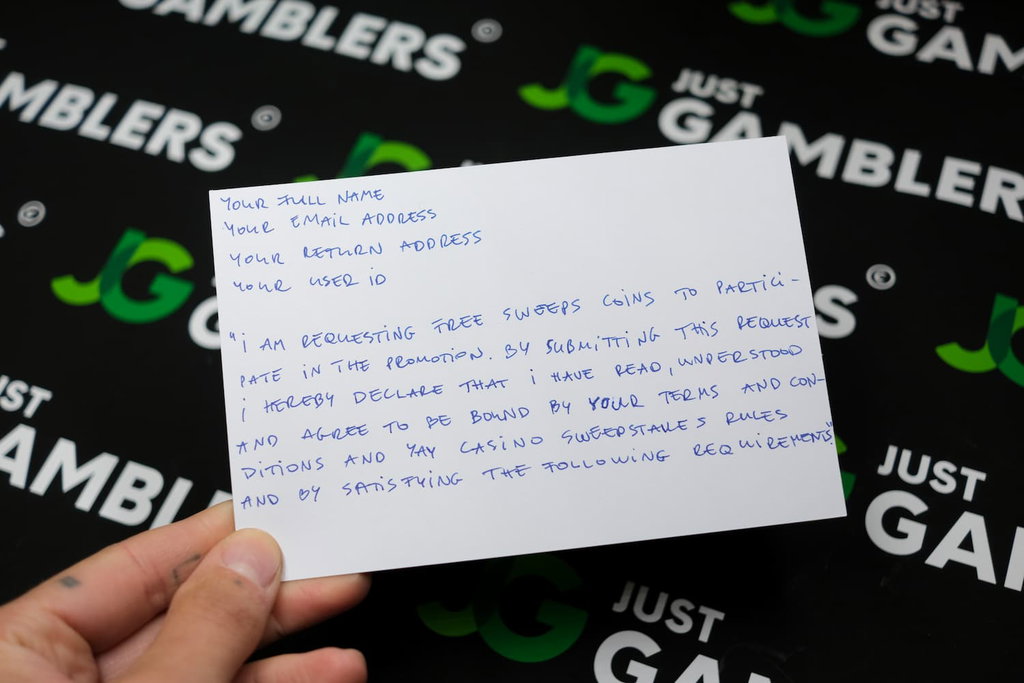 GAMBLERS
JUST
GAM
AMBLERS
JG
JUST
GAMBLERS
YOUR FULL NAME
YOUR EMAIL ADDRESS
YOUR RETURN ADDRESS
YOUR USER ID
"I AM REQUESTING FREE SWEEPS COINS TO PARTICI-
PATE IN THE PROMOTION. BY SUBMITTING THIS REQUEST
I HEREBY DECLARE THAT I HAVE READ, UNDERSTOOD
AND AGREE TO BE BOUND BY YOUR TERMS AND CON-
DITIONS AND YAY CASINO SWEEPSTAKES RULES
AND BY SATISFYING THE FOLLOWING REQUIREMENTS"
JG
G
S
UST
AMBL
JUST
GA
JUST
GA